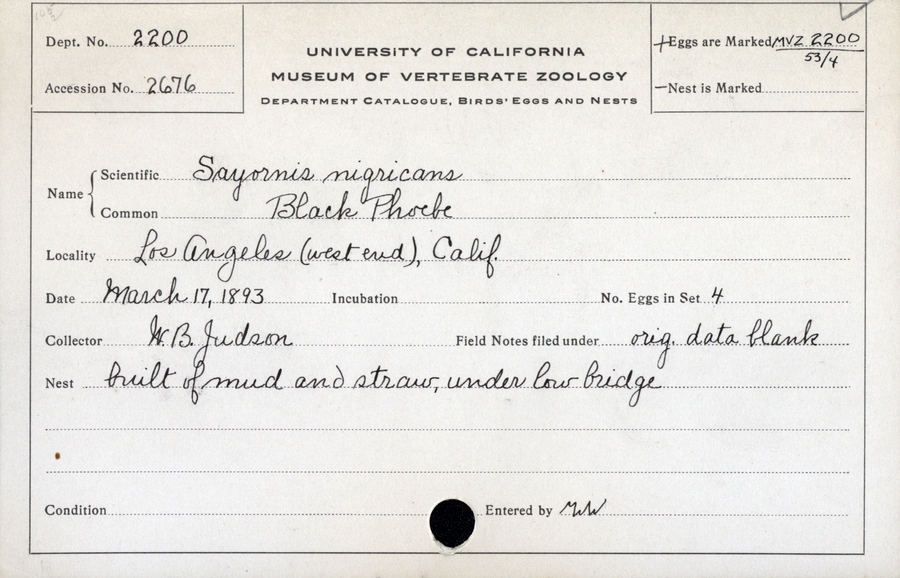 Dept. No. 2200
Accession No. 2676
UNIVERSITY OF CALIFORNIA
MUSEUM OF VERTEBRATE ZOOLOGY
DEPARTMENT CATALOGUE, BIRDS' EGGS AND NESTS
+Eggs are Marked MVZ 2200
53/4
—Nest is Marked
Name { Scientific Sayornis nigricans
Common Black Phoebe
Locality Los Angeles (west end), Calif.
Date March 17, 1893 Incubation No. Eggs in Set 4
Collector W. B. Judson Field Notes filed under orig. data blank
Nest built of mud and straw, under low bridge
Condition Entered by